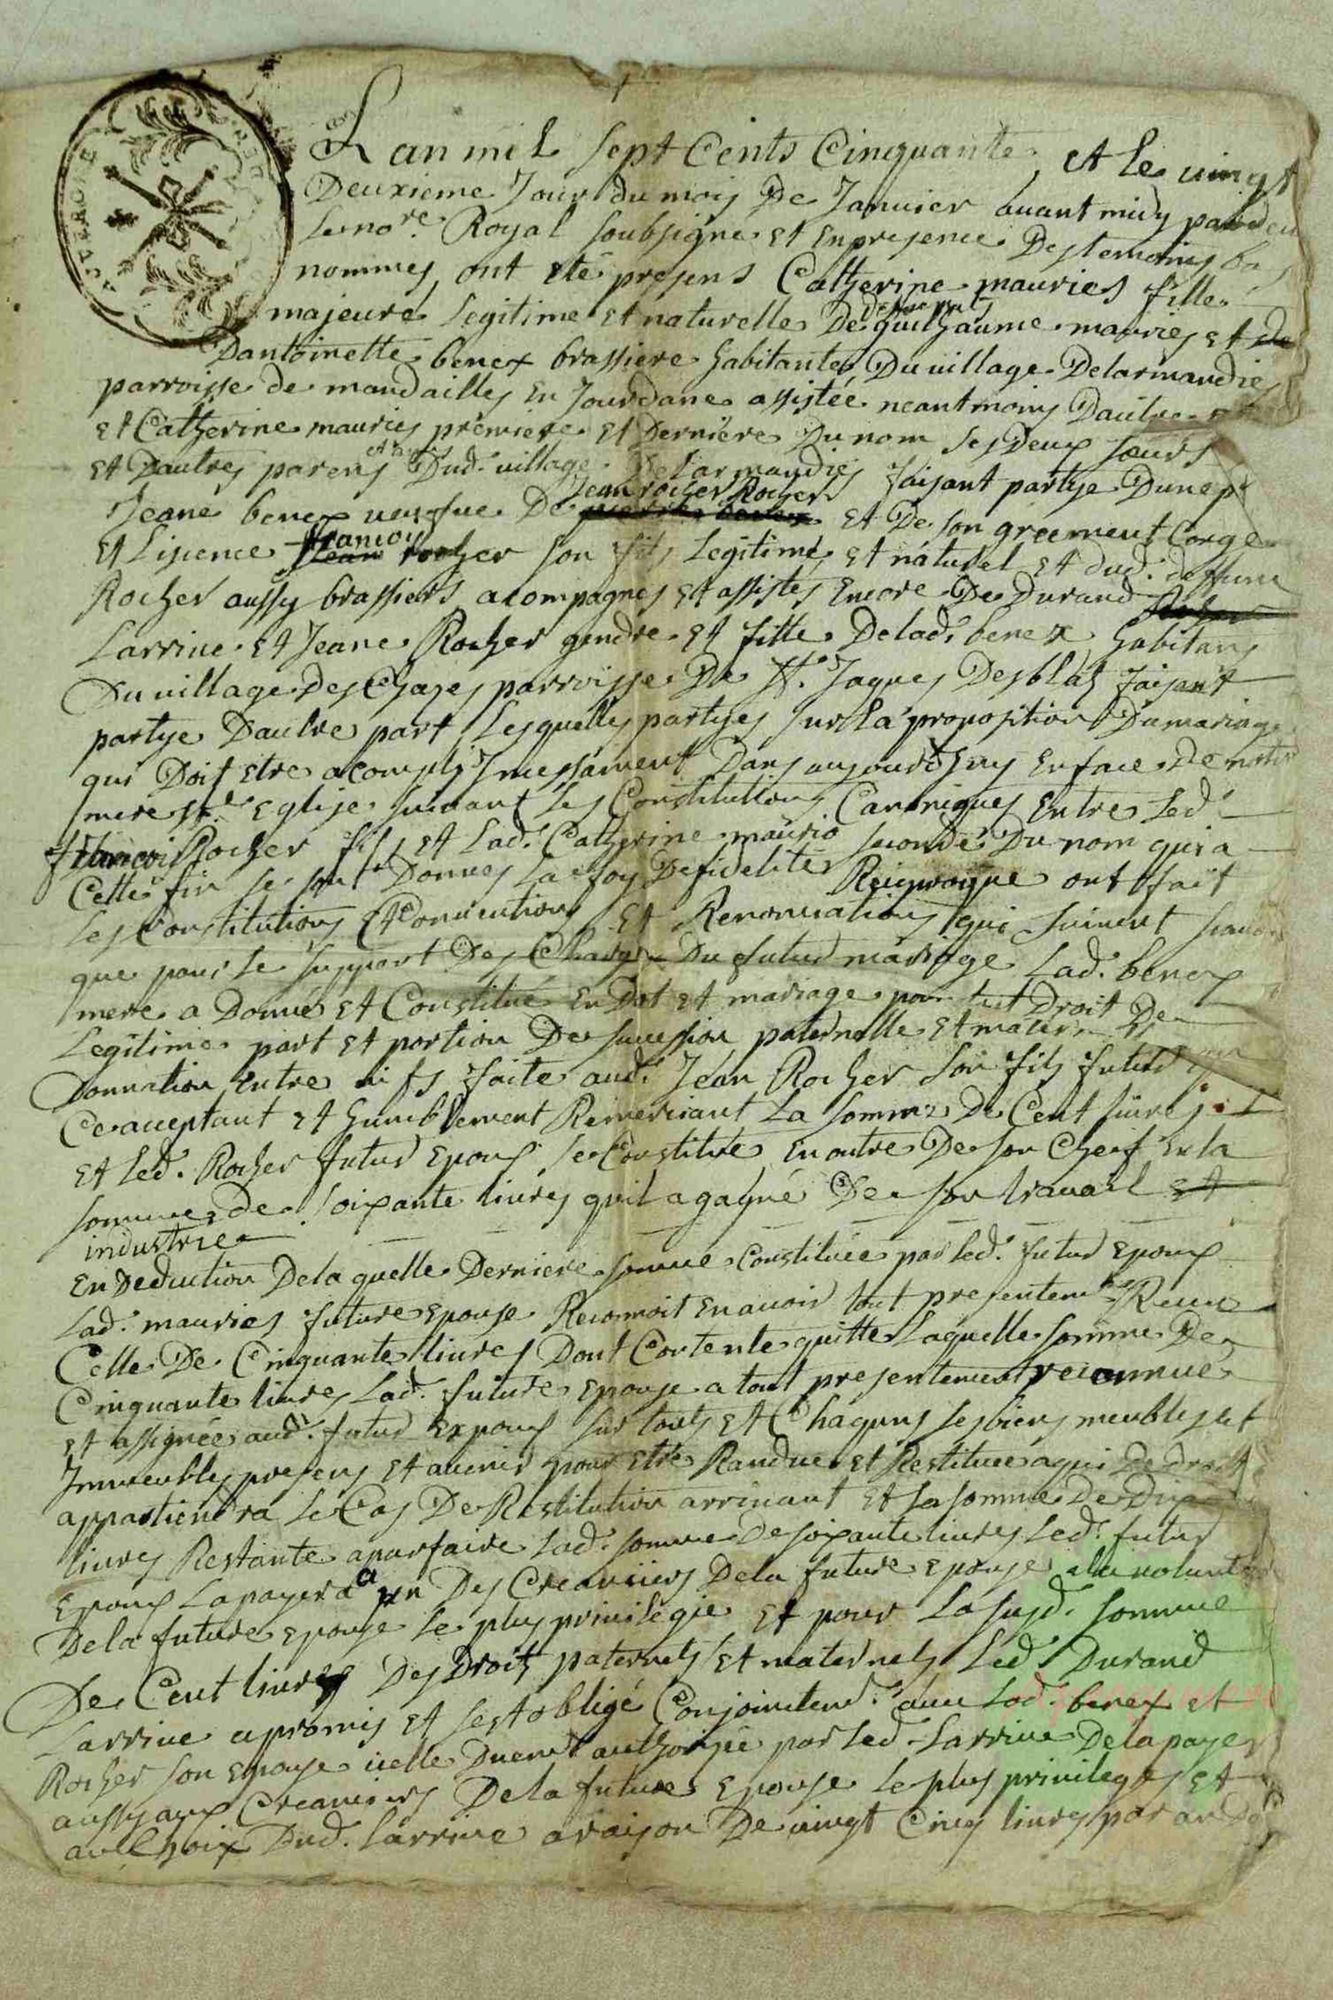 Lan mil sept Cents Cinquante et le vingt
Deuxieme Jour du mois De Janvier avant midy pardev
Le nore. Royal soubsigne et En presence Des temoins bas
nommes ont eté presens Catherine mauries fille
majeure Legitime et naturelle De deffunt guilhaume mauries et
Dantoinette benex brassiere habitante Du village Delarmandies
parroisse de mandailles En Jourdane assistée neantmoins Dautre
et Catherine mauries premiere et Derniere Du nom ses Deux sœurs
et Dautres parens Dud. village De larmandies faisant partye Dune p
Jeane benex veusfue De Jean rocher Rocher et De son greement Conge
et Lisence francois rocher son fils Legitime et naturel et dud. deffunt
Rocher aussy brassiers acompagnes et assistes Encore De Durand
Larrive et Jeane Rocher gendre et fille Delad. benex habitans
Du village Des Chazes parroisse De St. Jaques Des blats faisant
partye Dautre part Lesquelles partyes sur la proposition Du mariage
qui Doit etre acomply Incessament Dans aujourdhuy En face De notre
mere ste. Eglise suivant Les Constitutions Canoniques Entre Led.
francois Rocher fils et Lad. Catherine maurio seconde Du nom qui a
Celle fin se sont Donnes La foy De fidelite Reciproque ont fait
Les Constitutions et Conventions et Renonciations qui suivent scavoir
que pour Le support Des Charges Du futur mariage Lad. benex
mere a Donné et Constitué En Dot et mariage pour tout Droit De
Legitime part et portion De succession paternelle et mater
Donnation Entre vifs faite aud. Jean Rocher son fils futur
Ce acceptant et humblement Remerciant La somme De Cent livres
et Led. Rocher futur Epoux se Constitue En outre De son Chef En la
somme de soixante livres quil a gagné De son travail et
industrie
En Deduction De laquelle Derniere somme Constituée par Led. futur Epoux
Lad. mauries future Epouse Reconnoit En avoir tout presentemt. Receu
Celle De Cinquante livres Dont Contente quitte Laquelle somme De
Cinquante livres Lad. future Epouse a tout presentement reconnue
et assignée aud. futur Expoux sur touts et Chaquns ses biens meubles et
Immeubles presens et avenir pour etre Randue et Restituée a qui De droit
appartiendra Le Cas De Restitution arrivant et La somme De Dix
livres Restante a parfaire Lad. somme De soixante livres Led. futur
Epoux La payera a un Des Creanciers De la future Epouse a la volunté
De la future Epouse Le plus privilegie et pour La susd. somme
De Cent livres Des Droits paternels et maternels Led. Durand
Larrive a promis et sest obligé Conjointemt. avec Lad. benex et
Rocher son Epouse icelle Duemt authorisée par Led. Larrive De la payer
aussy aux Creanciers De la future Epouse Le plus privileges et
au Choix Dud. Larrive a raison De vingt Cinq livres par an De